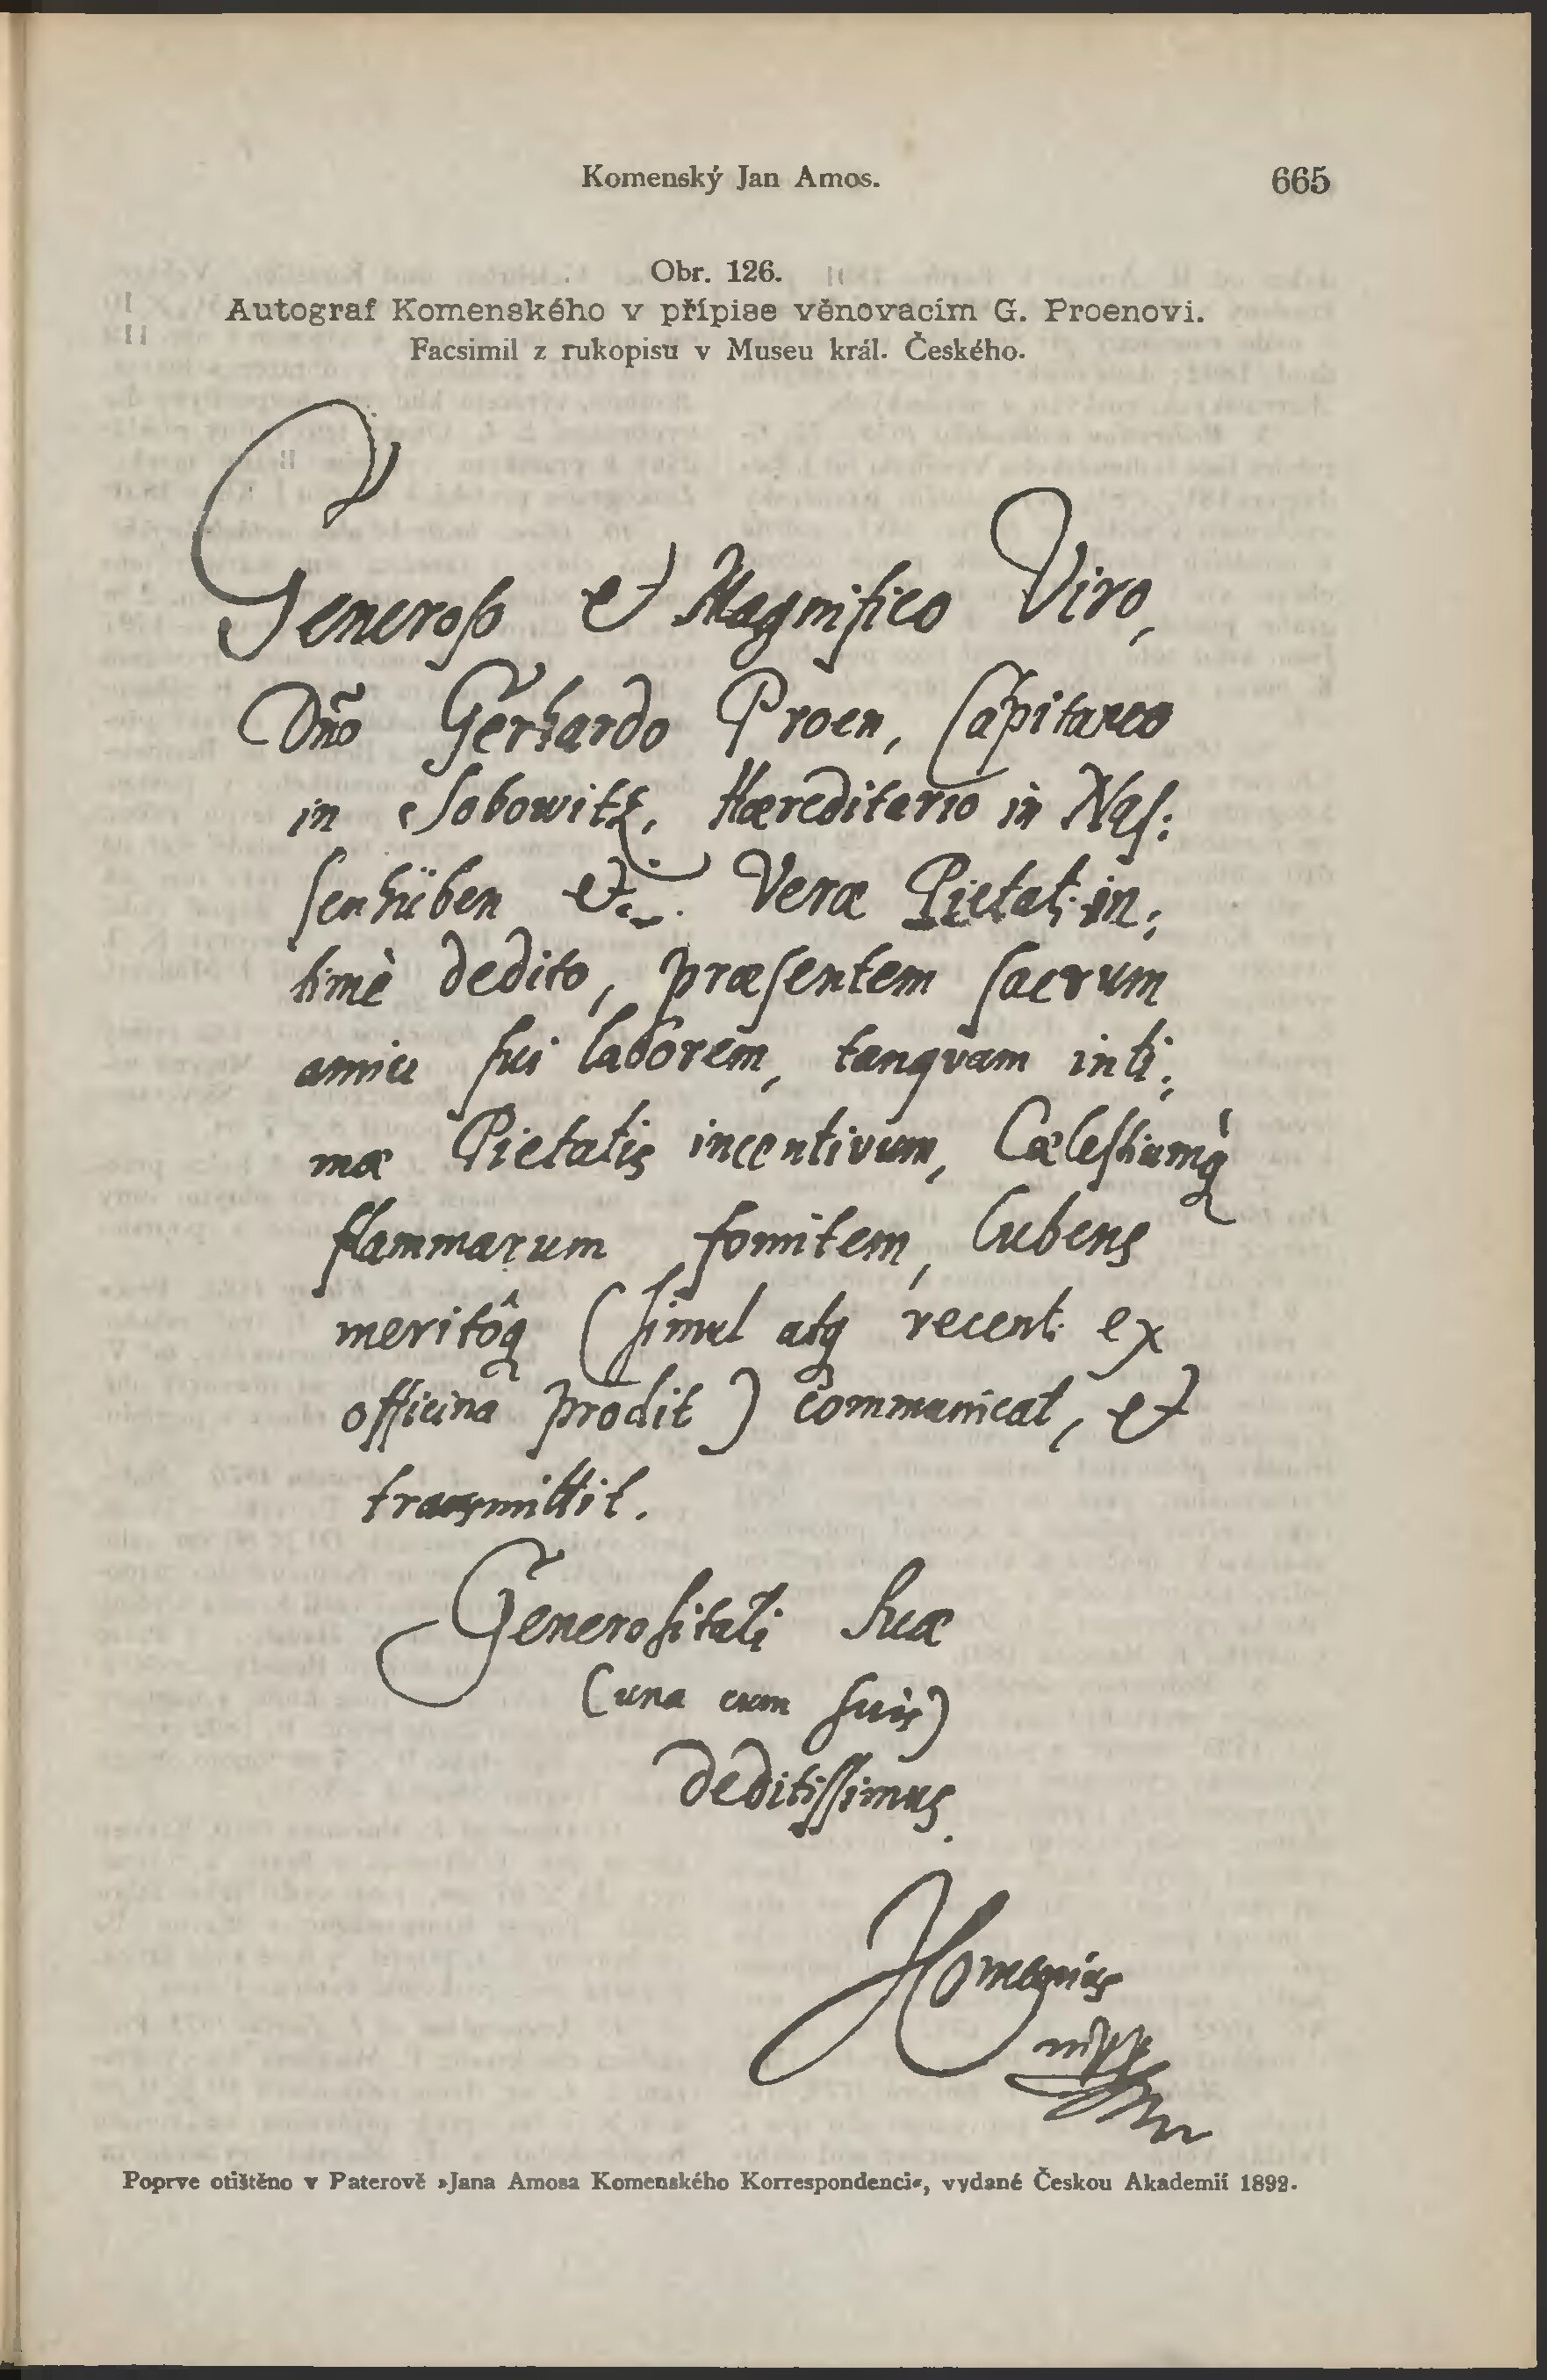 Komenský Jan Amos. 665
Obr. 126.
Autograf Komenského v přípise věnovacím G. Proenovi.
Facsimil z rukopisu v Museu král. Českého.
Generoso et Magnifico Viro,
Dño Gerhardo Proen, Capitaneo
in Sobowitz, Hæreditario in Nas:
senhüben etc. Veræ Pietati in:
timè dedito, præsentem sacrum
amici sui laborem, tanqvam inti:
mæ Pietatis incentivum, Cælestiumq́
flammarum fomitem, lubens
meritôq (simul atq recent: ex
officina prodit) communicat, et
transmittit.
Generositati suæ
(una cum suis)
deditissimus.
Komenius
mpp
Poprve otištěno v Paterově »Jana Amosa Komenského Korrespondenci«, vydané Českou Akademií 1892.